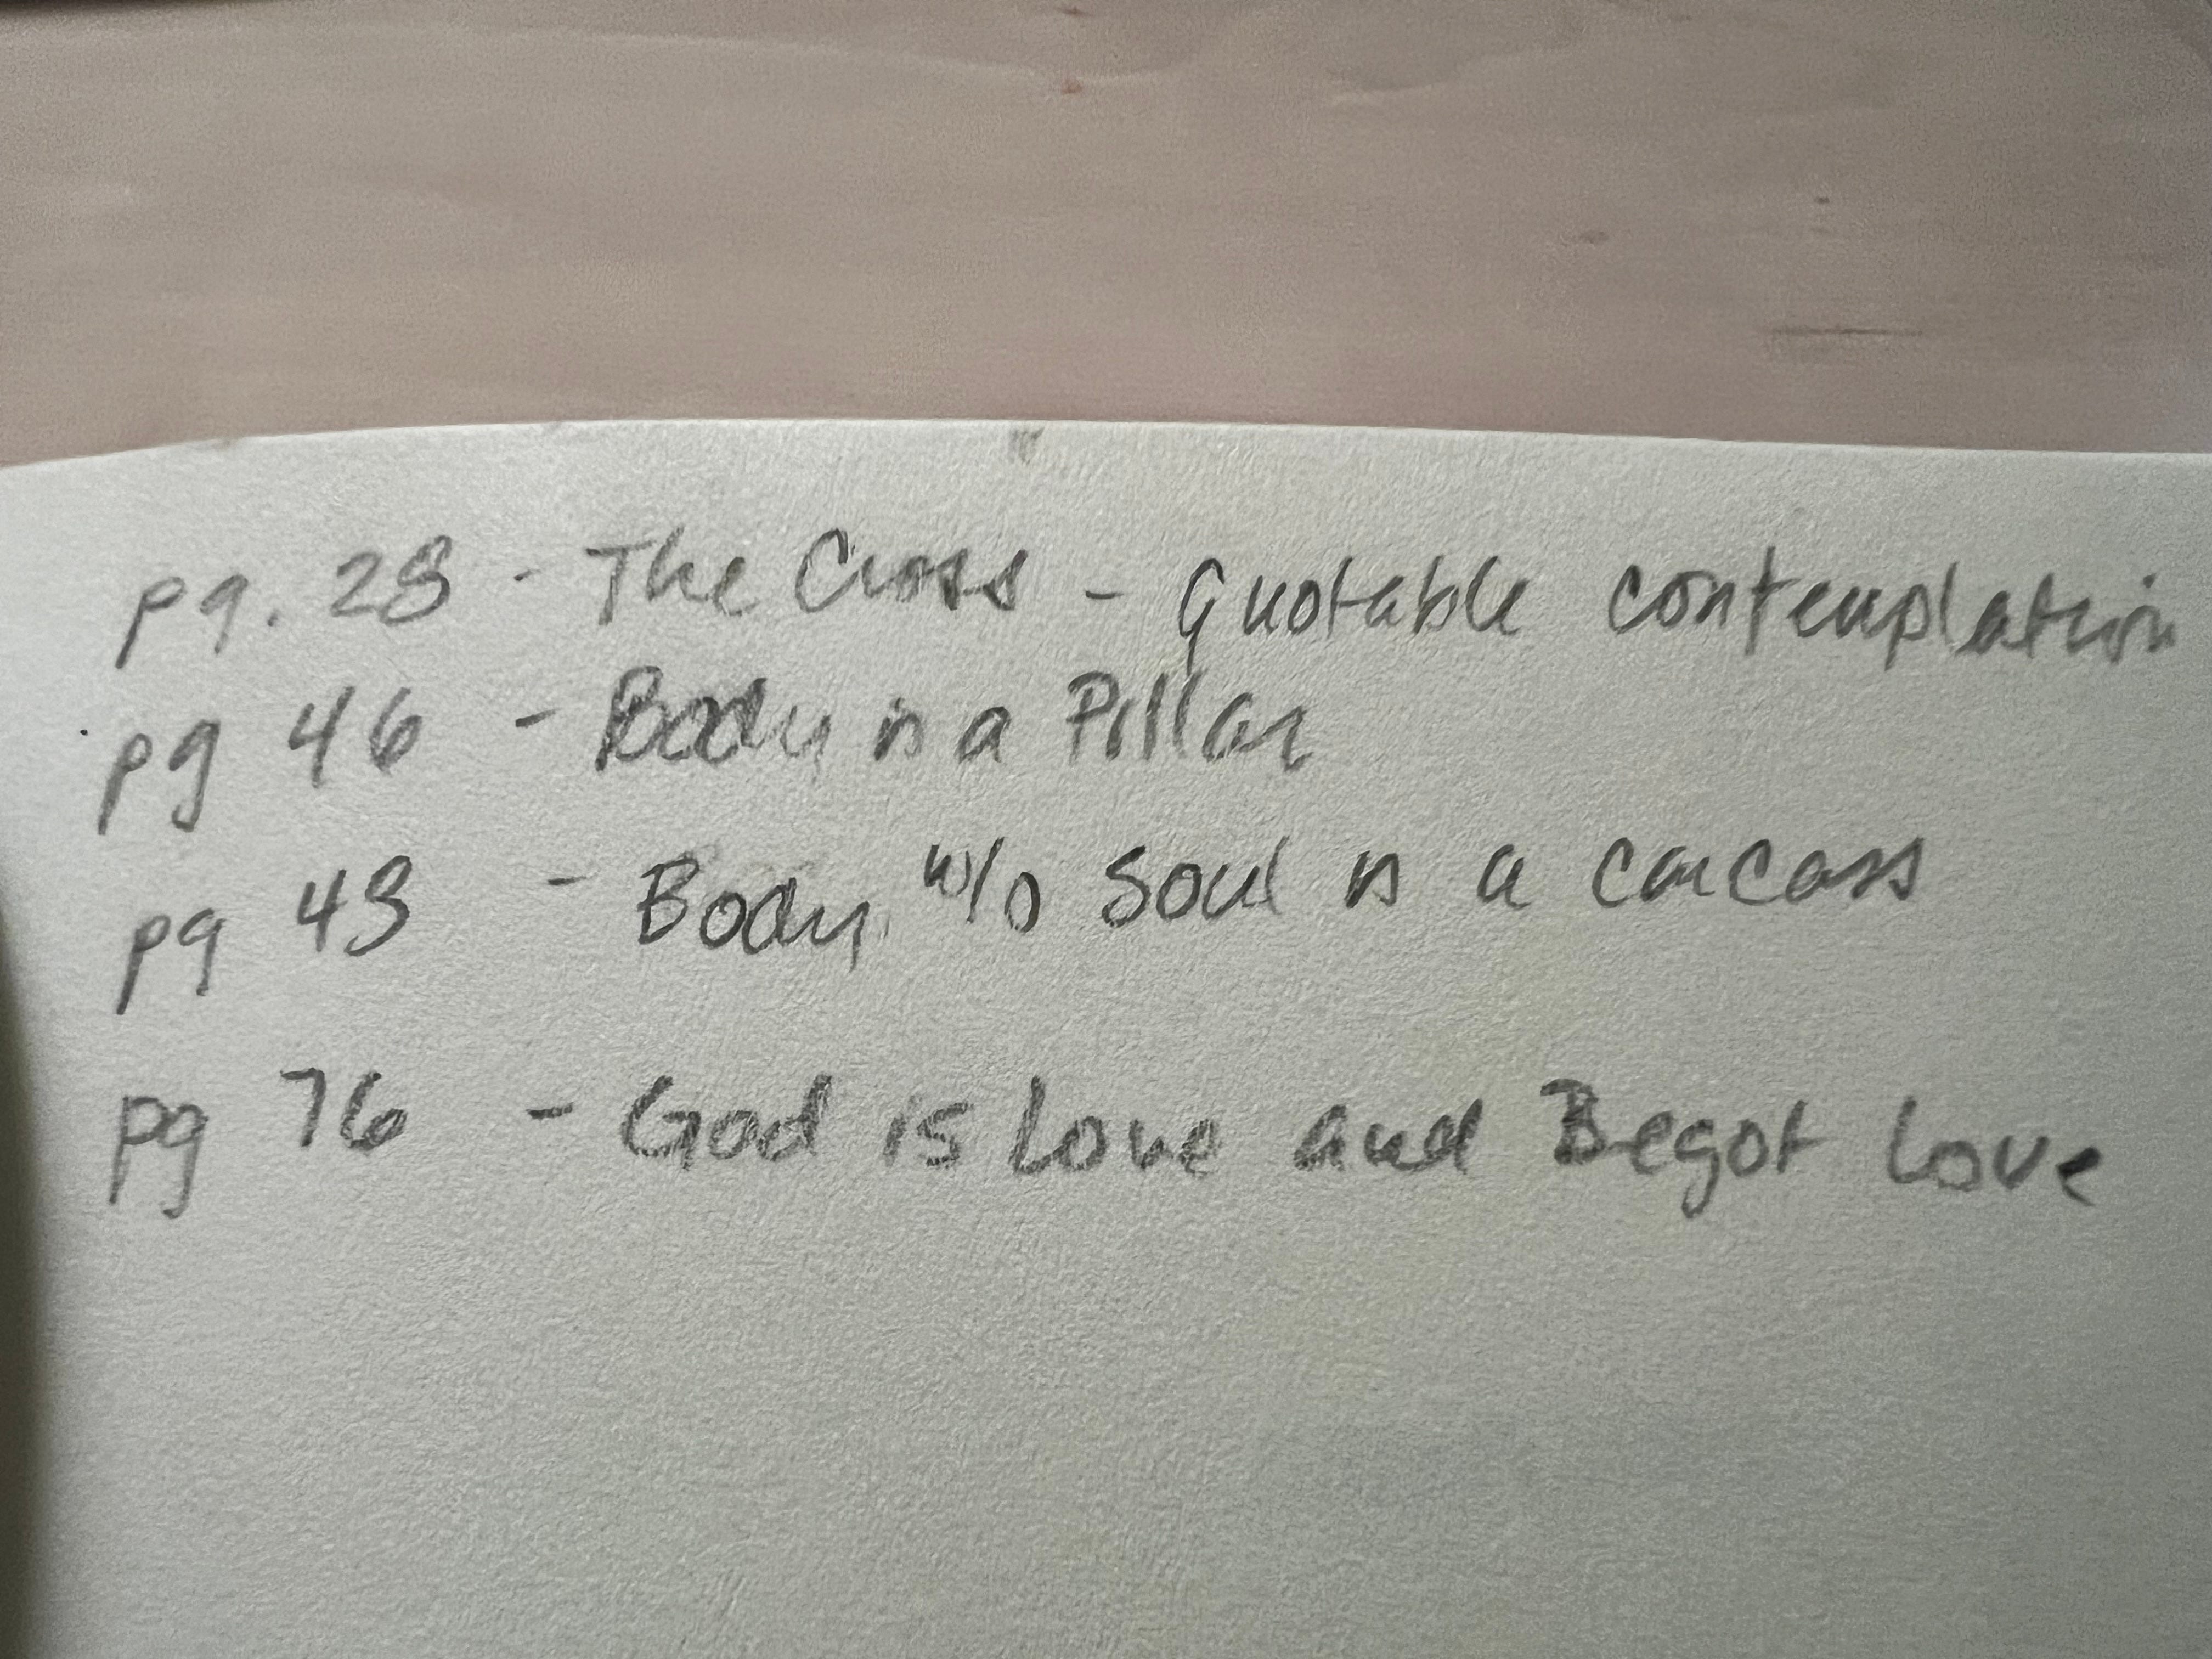 pg. 28 - The Cross - Quotable contemplation
pg 46 - Body is a Pillar
pg 48 - Body w/o Soul is a carcass
pg 76 - God is Love and Begot Love